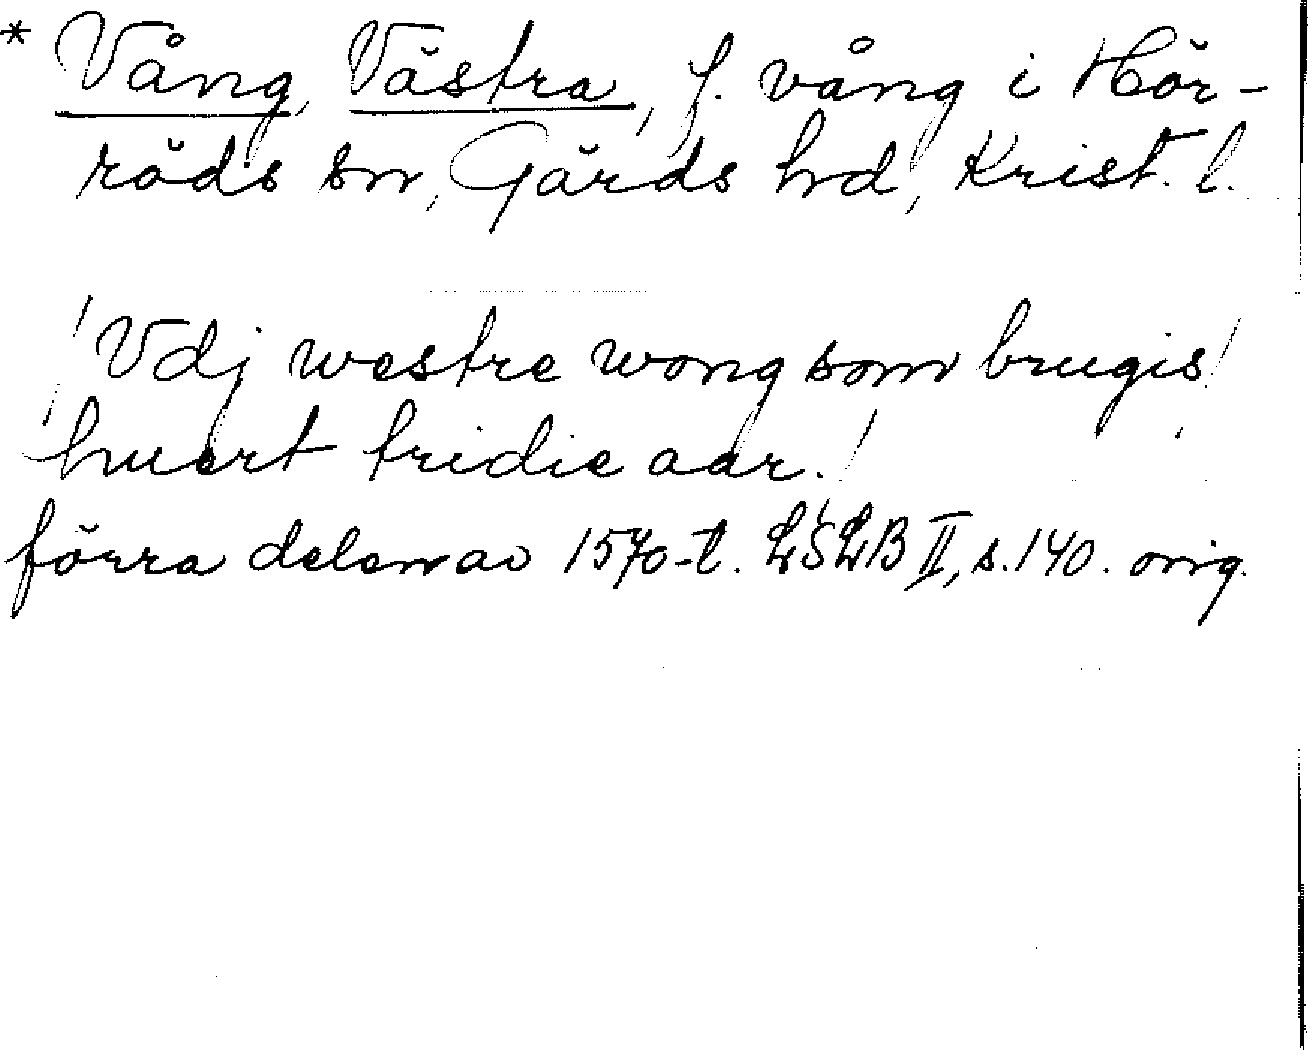 * Vång, Västra, f. vång i Hör-
röds sn, Gärds hd, Krist. l.
'Vdj westre wong som brugis'
'huert tridie aar.'
förra delen av 1570-t. LSLB II, s. 140. orig.